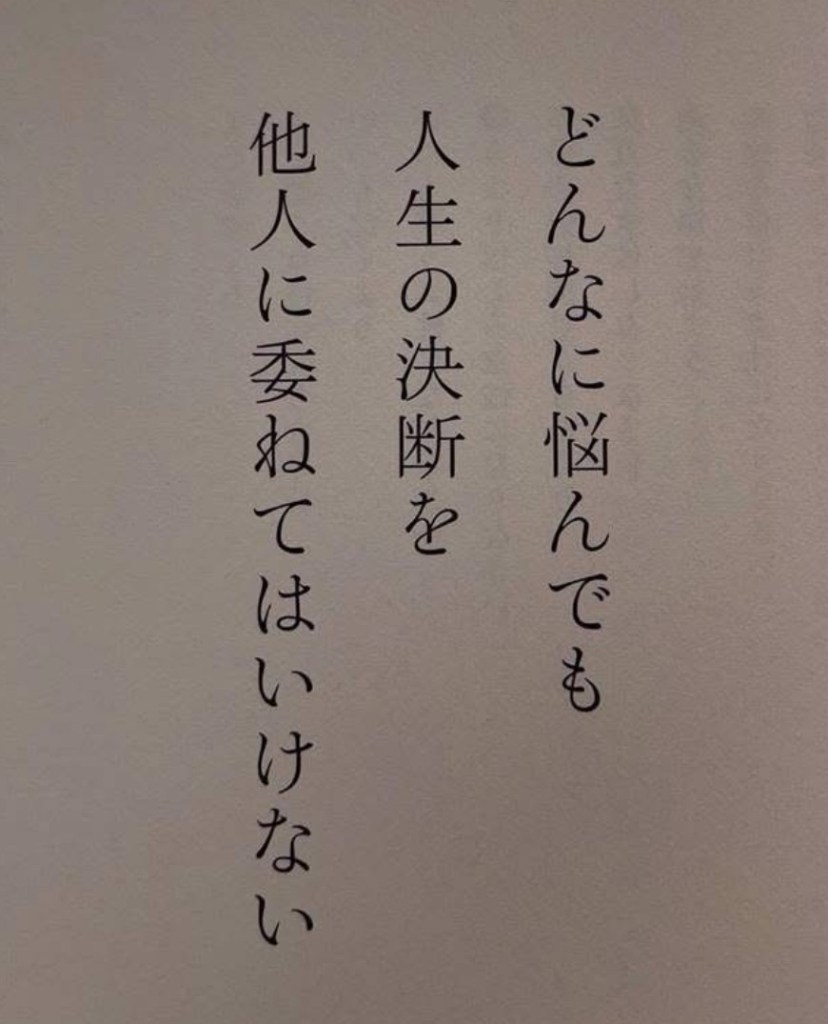 どんなに悩んでも
人生の決断を
他人に委ねてはいけない